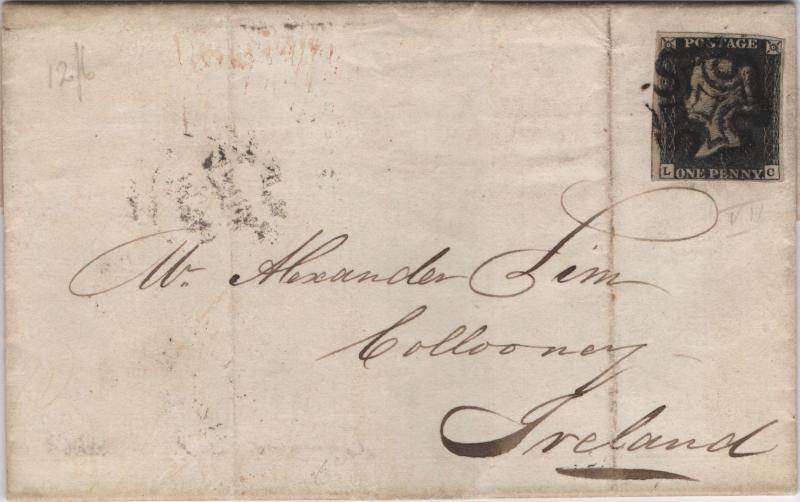 12/6
POSTAGE
L C
ONE PENNY
VII
Mr. Alexander Sim
Collooney
Ireland